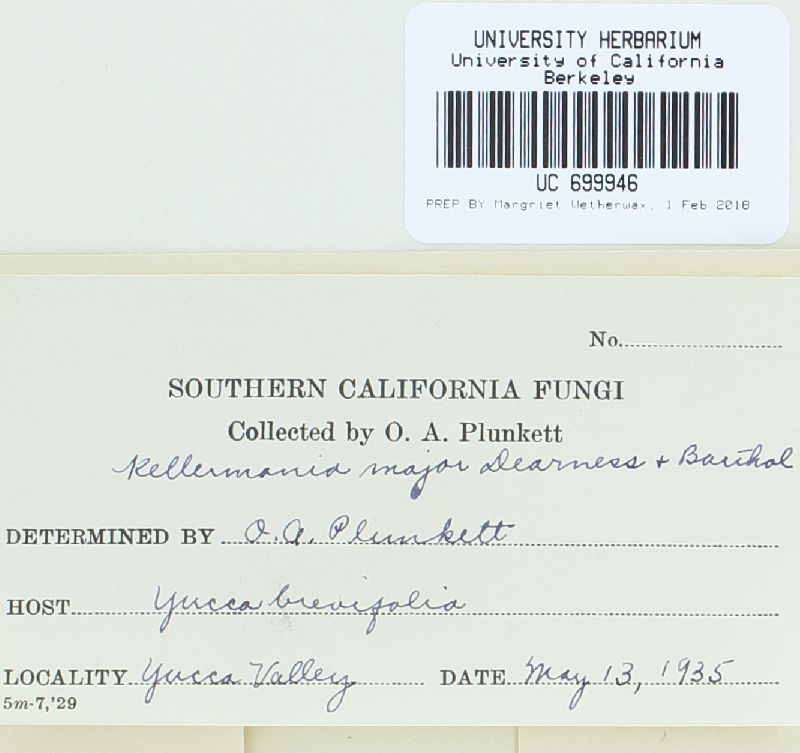 UNIVERSITY HERBARIUM
University of California
Berkeley
UC 699946
PREP BY Margriet Wetherwax, 1 Feb 2018
No.
SOUTHERN CALIFORNIA FUNGI
Collected by O. A. Plunkett
Kellermania major Dearness + Barthol
DETERMINED BY O. A. Plunkett
HOST Yucca brevifolia
LOCALITY Yucca Valley DATE May 13, 1935
5m-7,'29